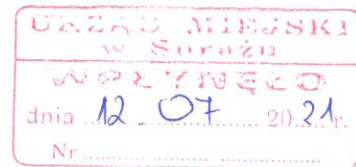 URZĄD MIEJSKI
w Surażu
WPŁYNĘŁO
dnia 12. 07 2021r.
Nr